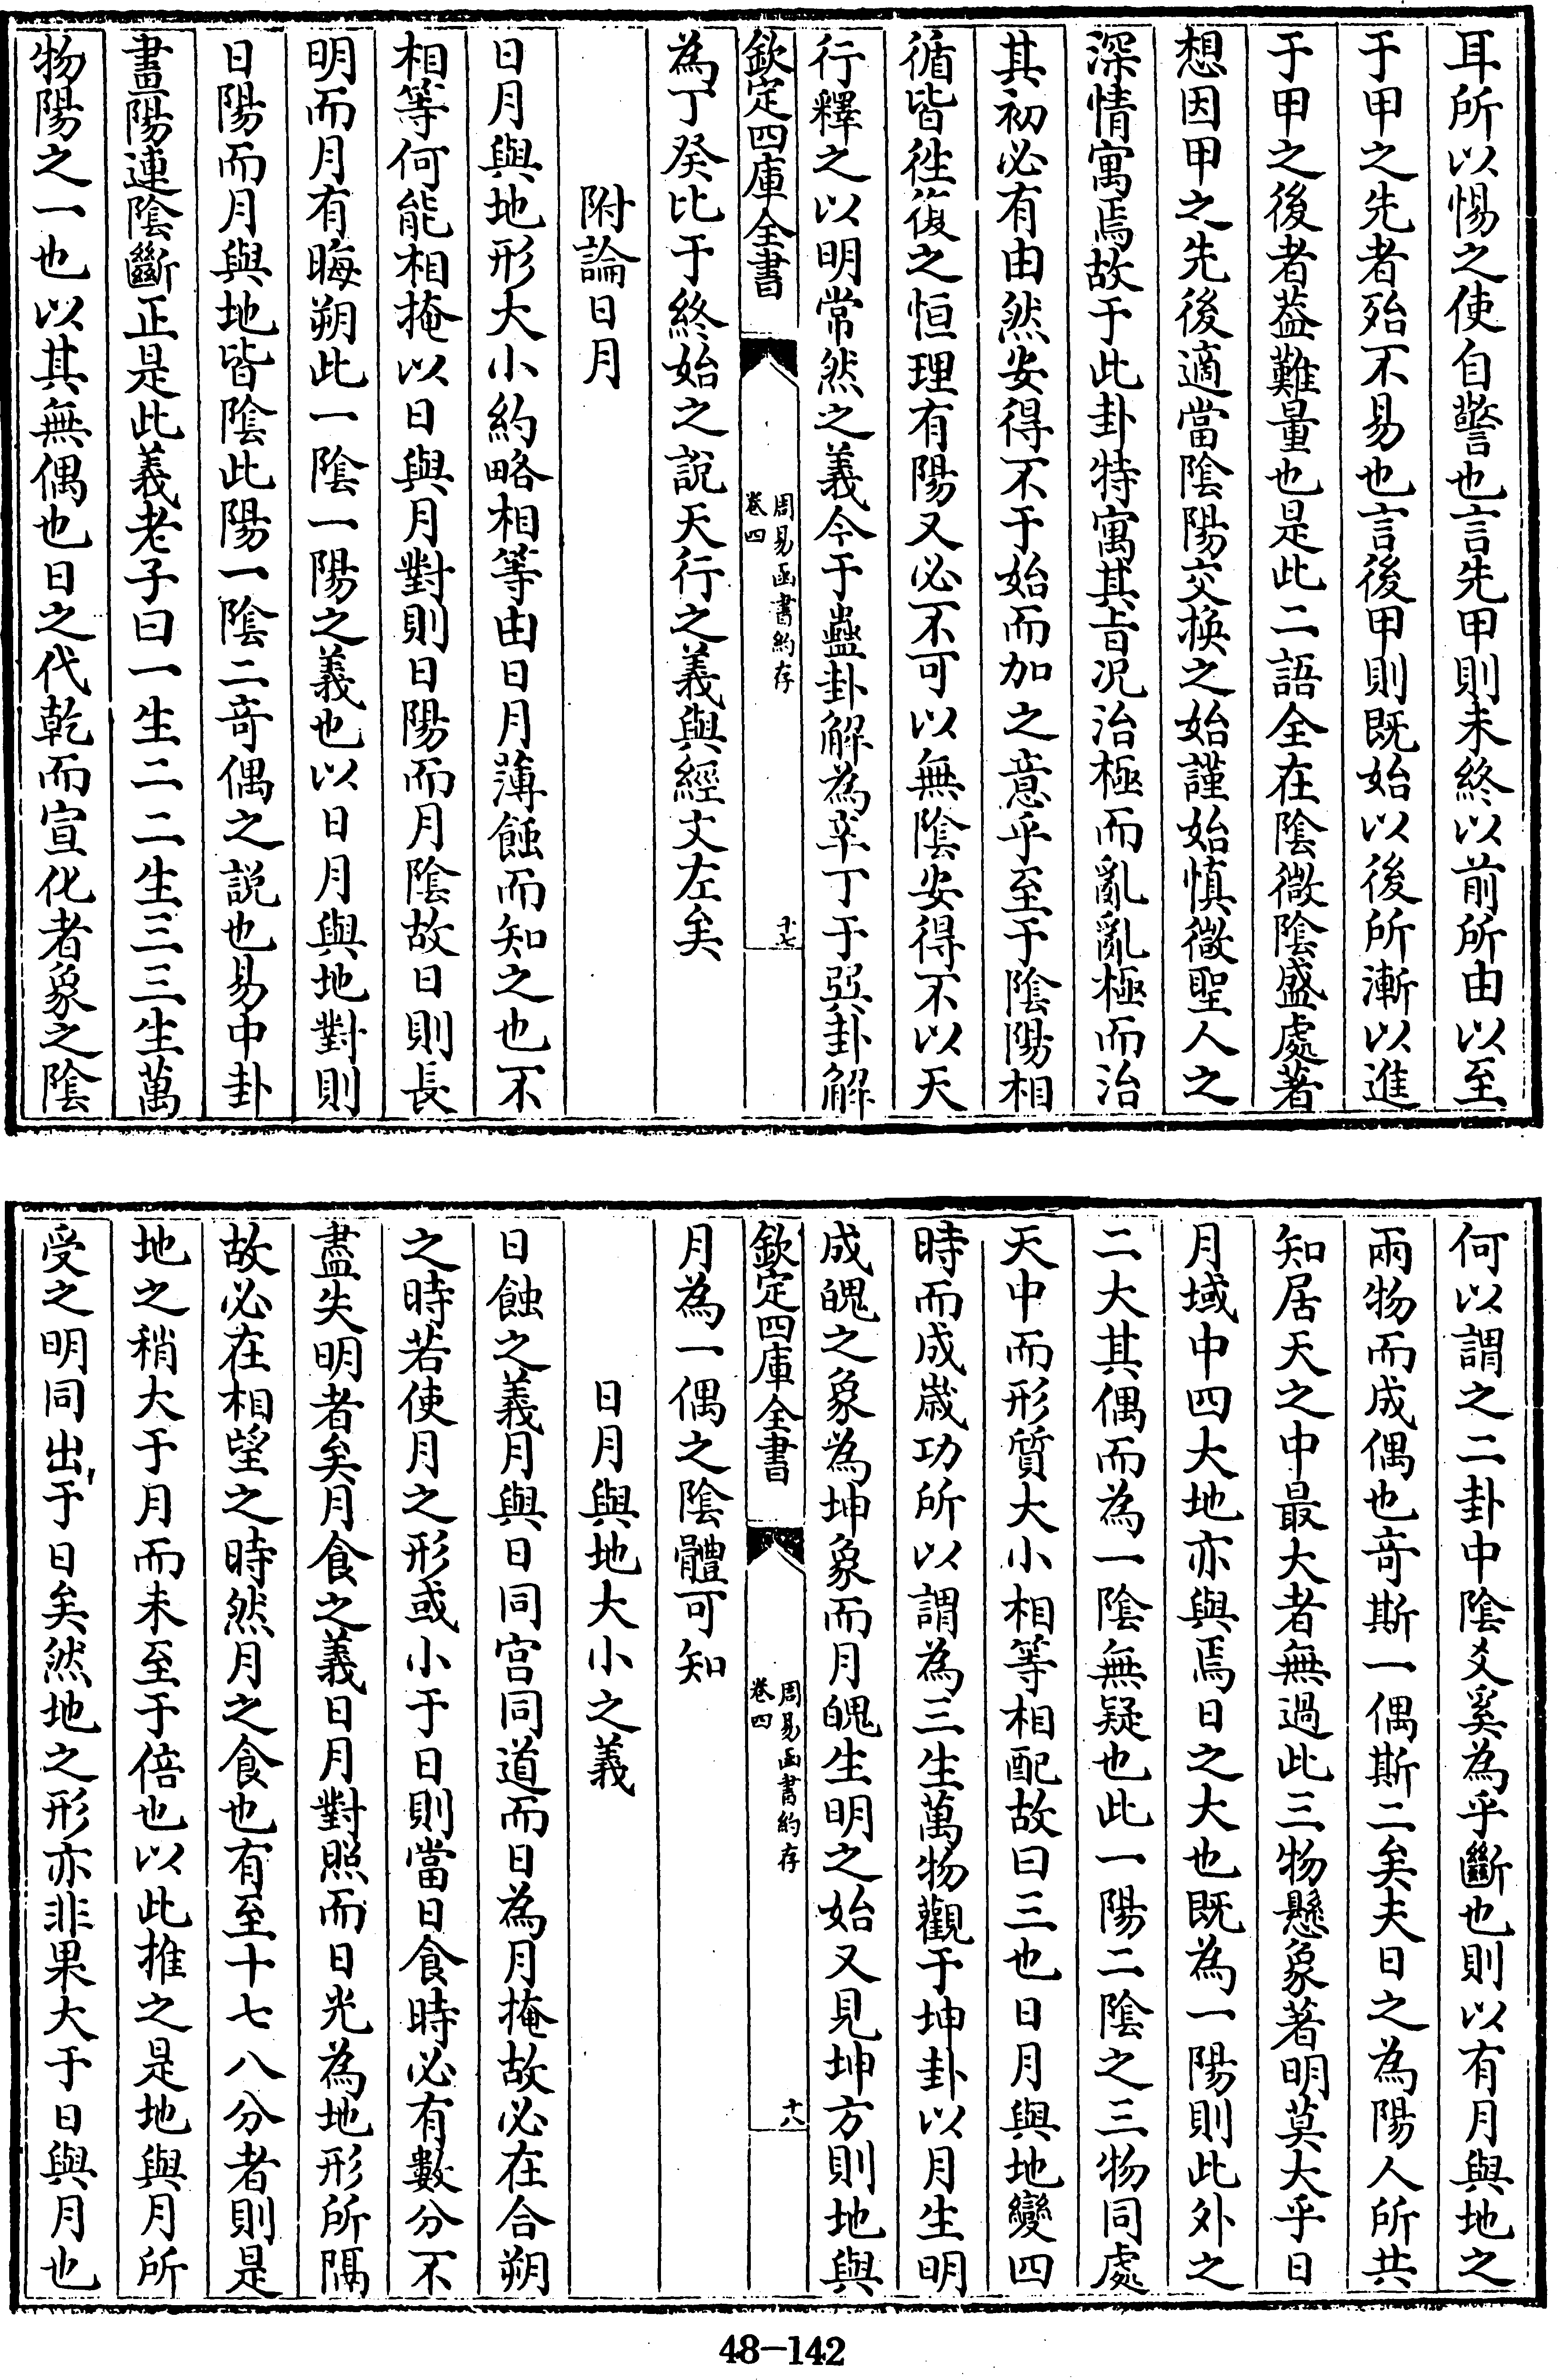 耳所以惕之使自警也言先甲則未終以前所由以至
于甲之先者殆不易也言後甲則既始以後所漸以進
于甲之後者葢難量也是此二語全在陰微陰盛處著
想因甲之先後適當陰陽交換之始謹始慎微聖人之
深情寓焉故于此卦特寓其㫖况治極而亂亂極而治
其初必有由然安得不于始而加之意乎至于陰陽相
循皆徃復之恒理有陽又必不可以無陰安得不以天
行釋之以明常然之義今于蠱卦解為辛丁于巽卦解
欽定四庫全書
周易函書約存
卷四
十七
為丁癸比于終始之說天行之義與經文左矣
附論日月
日月與地形大小約略相等由日月薄蝕而知之也不
相等何能相掩以日與月對則日陽而月陰故日則長
明而月有晦朔此一陰一陽之義也以日月與地對則
日陽而月與地皆陰此陽一陰二竒偶之說也易中卦
畫陽連陰斷正是此義老子曰一生二二生三三生萬
物陽之一也以其無偶也日之代乾而宣化者象之陰
何以謂之二卦中陰爻奚為乎斷也則以有月與地之
兩物而成偶也竒斯一偶斯二矣夫日之為陽人所共
知居天之中最大者無過此三物懸象著明莫大乎日
月域中四大地亦與焉日之大也既為一陽則此外之
二大其偶而為一陰無疑也此一陽二陰之三物同處
天中而形質大小相等相配故曰三也日月與地變四
時而成歲功所以謂為三生萬物觀于坤卦以月生明
成魄之象為坤象而月魄生明之始又見坤方則地與
欽定四庫全書
周易函書約存
卷四
十八
月為一偶之陰體可知
日月與地大小之義
日蝕之義月與日同宫同道而日為月掩故必在合朔
之時若使月之形或小于日則當日食時必有數分不
盡失明者矣月食之義日月對照而日光為地形所隔
故必在相望之時然月之食也有至十七八分者則是
地之稍大于月而未至于倍也以此推之是地與月所
受之明同出于日矣然地之形亦非果大于日與月也
48-142